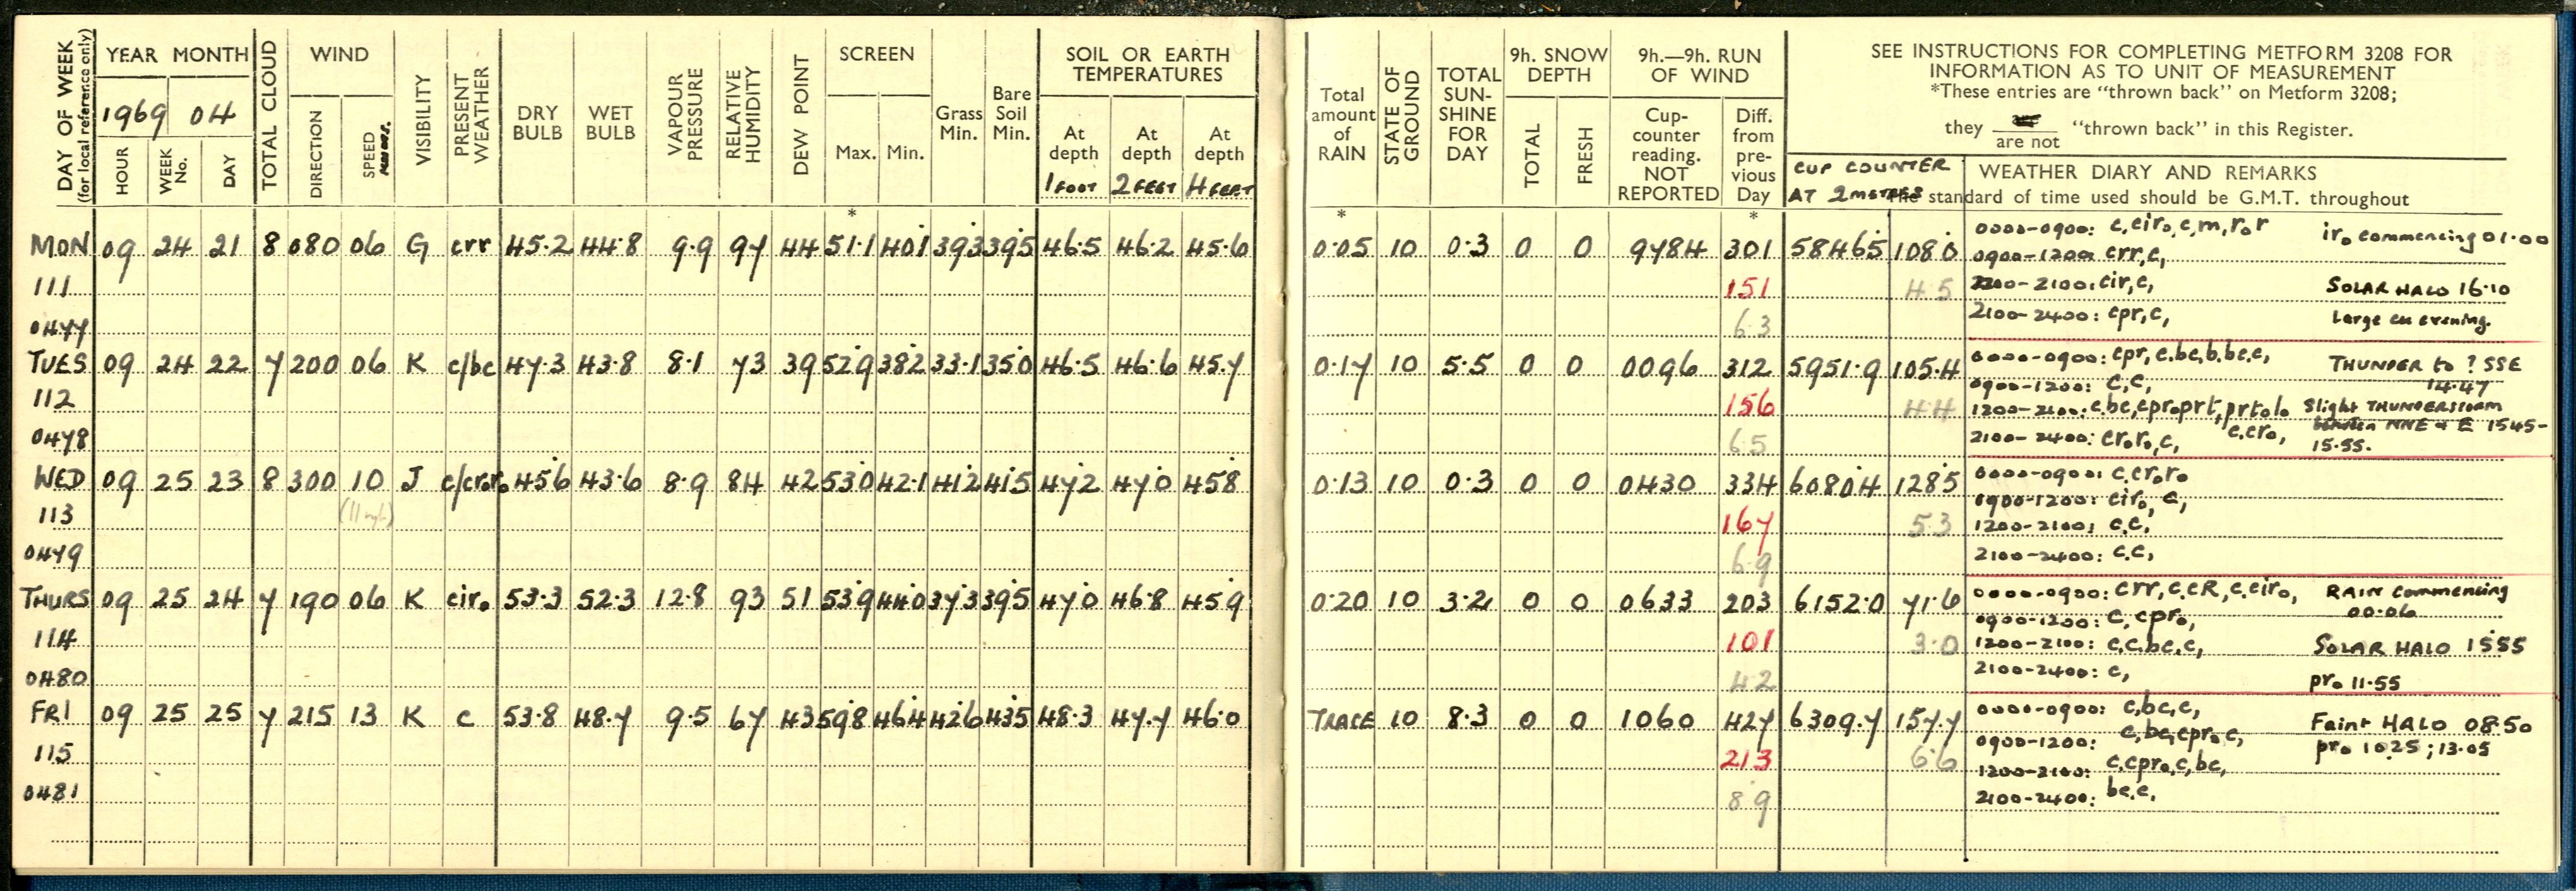 DAY OF WEEK
(for local reference only)
YEAR MONTH
1969 04
HOUR
WEEK No.
DAY
TOTAL CLOUD
WIND
DIRECTION
SPEED
VISIBILITY
PRESENT WEATHER
DRY BULB
WET BULB
VAPOUR PRESSURE
RELATIVE HUMIDITY
DEW POINT
SCREEN
Max. Min.
Grass Min.
Bare Soil Min.
SOIL OR EARTH TEMPERATURES
At depth 1 FOOT
At depth 2 FEET
At depth 4 FEET
Total amount of RAIN
STATE OF GROUND
TOTAL SUN-SHINE FOR DAY
9h. SNOW DEPTH
TOTAL
FRESH
9h.—9h. RUN OF WIND
Cup-counter reading. NOT REPORTED
Diff. from pre-vious Day
SEE INSTRUCTIONS FOR COMPLETING METFORM 3208 FOR
INFORMATION AS TO UNIT OF MEASUREMENT
*These entries are "thrown back" on Metform 3208;
they are not "thrown back" in this Register.
CUP COUNTER
AT 2 METRES
WEATHER DIARY AND REMARKS
The standard of time used should be G.M.T. throughout
* * *
MON 09 24 21 8 080 06 G crr 45.2 44.8 9.9 97 44 51.1 40.1 39.3 39.5 46.5 46.2 45.6 0.05 10 0.3 0 0 9784 301 5846.5 108.0
0000-0900: c,ciro,c,m,ror iro commencing 01.00
0900-1200: crr,c,
111 151 4.5
1200-2100: cir,c, SOLAR HALO 16.10
0477 6.3
2100-2400: cpr,c, Large cu evening.
TUES 09 24 22 7 200 06 K c/bc 47.3 43.8 8.1 73 39 52.9 38.2 33.1 35.0 46.5 46.6 45.7 0.17 10 5.5 0 0 0096 312 5951.9 105.4
0000-0900: cpr,c.bc,b.bc,c, THUNDER to ? SSE
0900-1200: c,c, 14.47
112 156 4.4
1200-2100: c.bc,cproprt,prtolo Slight THUNDERSTORM
c.cro, NNE & E 1545-
0478 6.5
2100-2400: cro.ro,c, 15.55.
WED 09 25 23 8 300 10 J c/croro 45.6 43.6 8.9 84 42 53.0 42.1 41.2 41.5 47.2 47.0 45.8 0.13 10 0.3 0 0 0430 334 6080.4 128.5
0000-0900: c,croro
0900-1200: ciro, c,
113 167 5.3
1200-2100: c.c,
0479 6.9
2100-2400: c.c,
THURS 09 25 24 7 190 06 K ciro 53.3 52.3 12.8 93 51 53.9 44.0 37.3 39.5 47.0 46.8 45.9 0.20 10 3.2 0 0 0633 203 6152.0 71.6
0000-0900: crr,c.cR,c.ciro, RAIN commencing
00.06
0900-1200: c,cpro,
114 101 3.0
1200-2100: c,c,bc,c, SOLAR HALO 1555
0480 4.2
2100-2400: c, pro 11.55
FRI 09 25 25 7 215 13 K c 53.8 48.7 9.5 67 43 59.8 46.4 42.6 43.5 48.3 47.7 46.0 TRACE 10 8.3 0 0 1060 427 6309.7 157.7
0000-0900: c,bc,c, Faint HALO 08.50
0900-1200: c,bc,cpro c, pro 1025; 13.05
115 213 6.6
1200-2100: c,cpro,c,bc,
0481 8.9
2100-2400: bc.c,